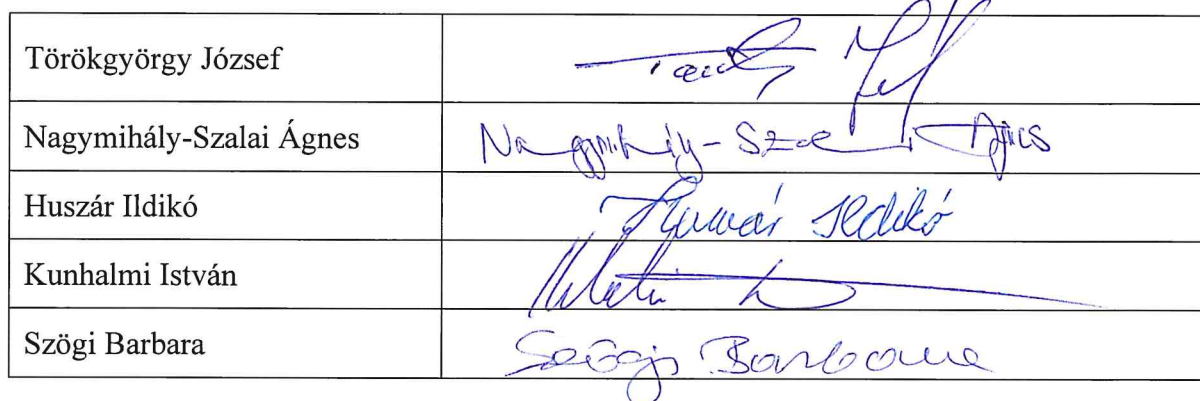 Törökgyörgy József
Nagymihály-Szalai Ágnes Nagymihály-Szalai Ágnes
Huszár Ildikó Huszár Ildikó
Kunhalmi István
Szögi Barbara Szögi Barbara